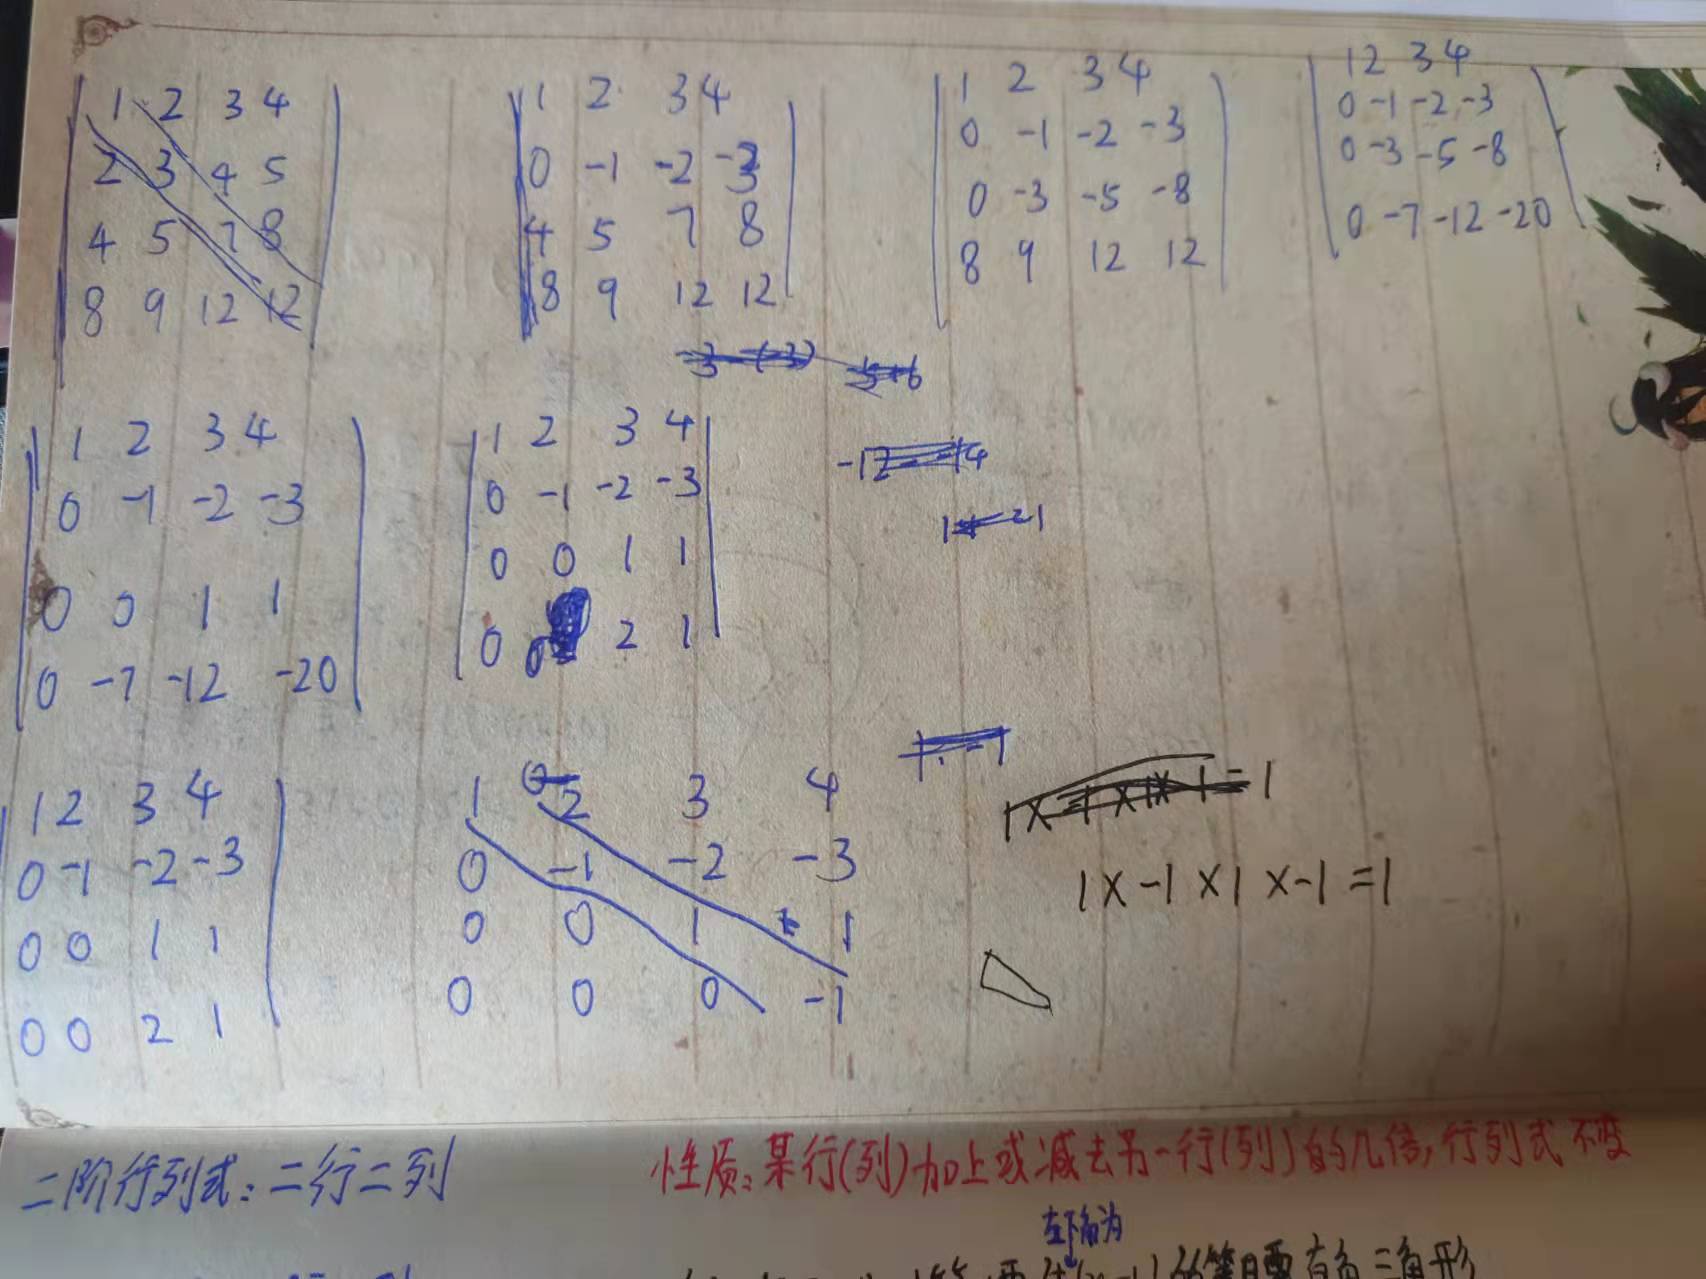 1 2 3 4
2 3 4 5
4 5 7 8
8 9 12 12
1 2 3 4
0 -1 -2 -3
4 5 7 8
8 9 12 12
1 2 3 4
0 -1 -2 -3
0 -3 -5 -8
8 9 12 12
1 2 3 4
0 -1 -2 -3
0 -3 -5 -8
0 -7 -12 -20
1 2 3 4
0 -1 -2 -3
0 0 1 1
0 -7 -12 -20
1 2 3 4
0 -1 -2 -3
0 0 1 1
0 0 2 1
1 2 3 4
0 -1 -2 -3
0 0 1 1
0 0 2 1
1 2 3 4
0 -1 -2 -3
0 0 1 1
0 0 0 -1
1×-1×1×-1=1
二阶行列式:二行二列
性质:某行(列)加上或减去另一行(列)的几倍,行列式不变
左下角为